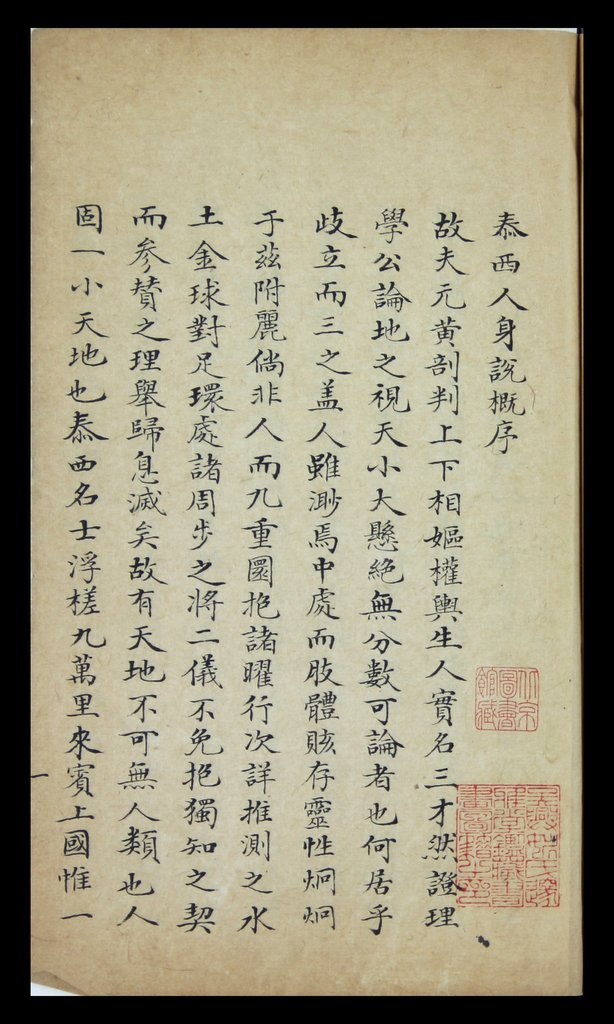 泰西人身說概序
故夫元黄剖判上下相嫗權輿生人實名三才然證理
學公論地之視天小大懸絶無分數可論者也何居乎
歧立而三之盖人雖渺焉中處而肢體賅存靈性炯炯
于兹附麗倘非人而九重圜抱諸曜行次詳推測之水
土金球對足環處諸周步之将二儀不免抱獨知之契
而参賛之理舉歸息滅矣故有天地不可無人類也人
固一小天地也泰西名士浮槎九萬里來賓上國惟一
北京
圖書
館藏